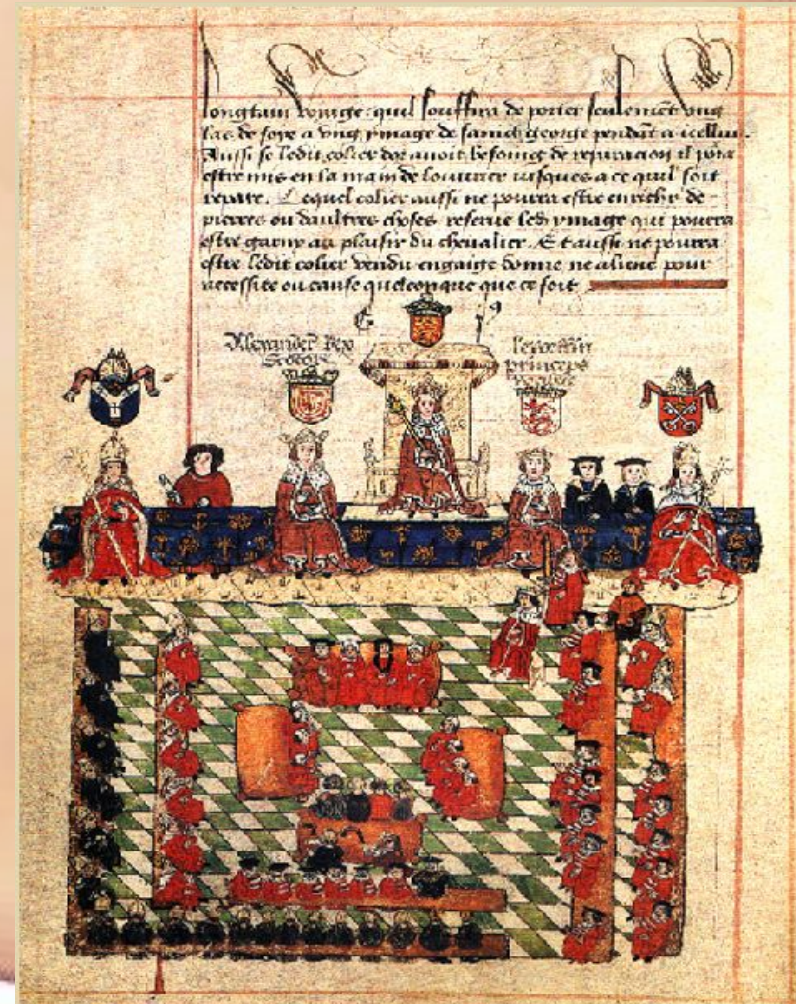 longtain voiaige quil souffira de porter seulement ung
las de soye a ung ymage de sainct george pendāt a icelluy.
Aussi se ledit colier dor avoit besoing de reparacion il pora
estre mis en la main de louvrier iusques a ce quil soit
repare. Lequel colier aussi ne pourra estre enrichy de
pierres ou daultres choses reserve ledit ymage qui pourra
estre garny au plaisir du chevalier. Et aussi ne pourra
estre ledit colier vendu engaige donne ne aliene pour
necessite ou cause quelconque que ce soit
Alexander Rex
princeps